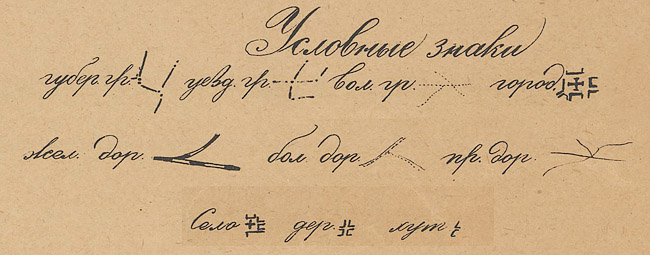 Условные знаки
губер. гр. уезд. гр. вол. гр. город.
жел. дор. бол. дор. пр. дор.
Село дер. хут.